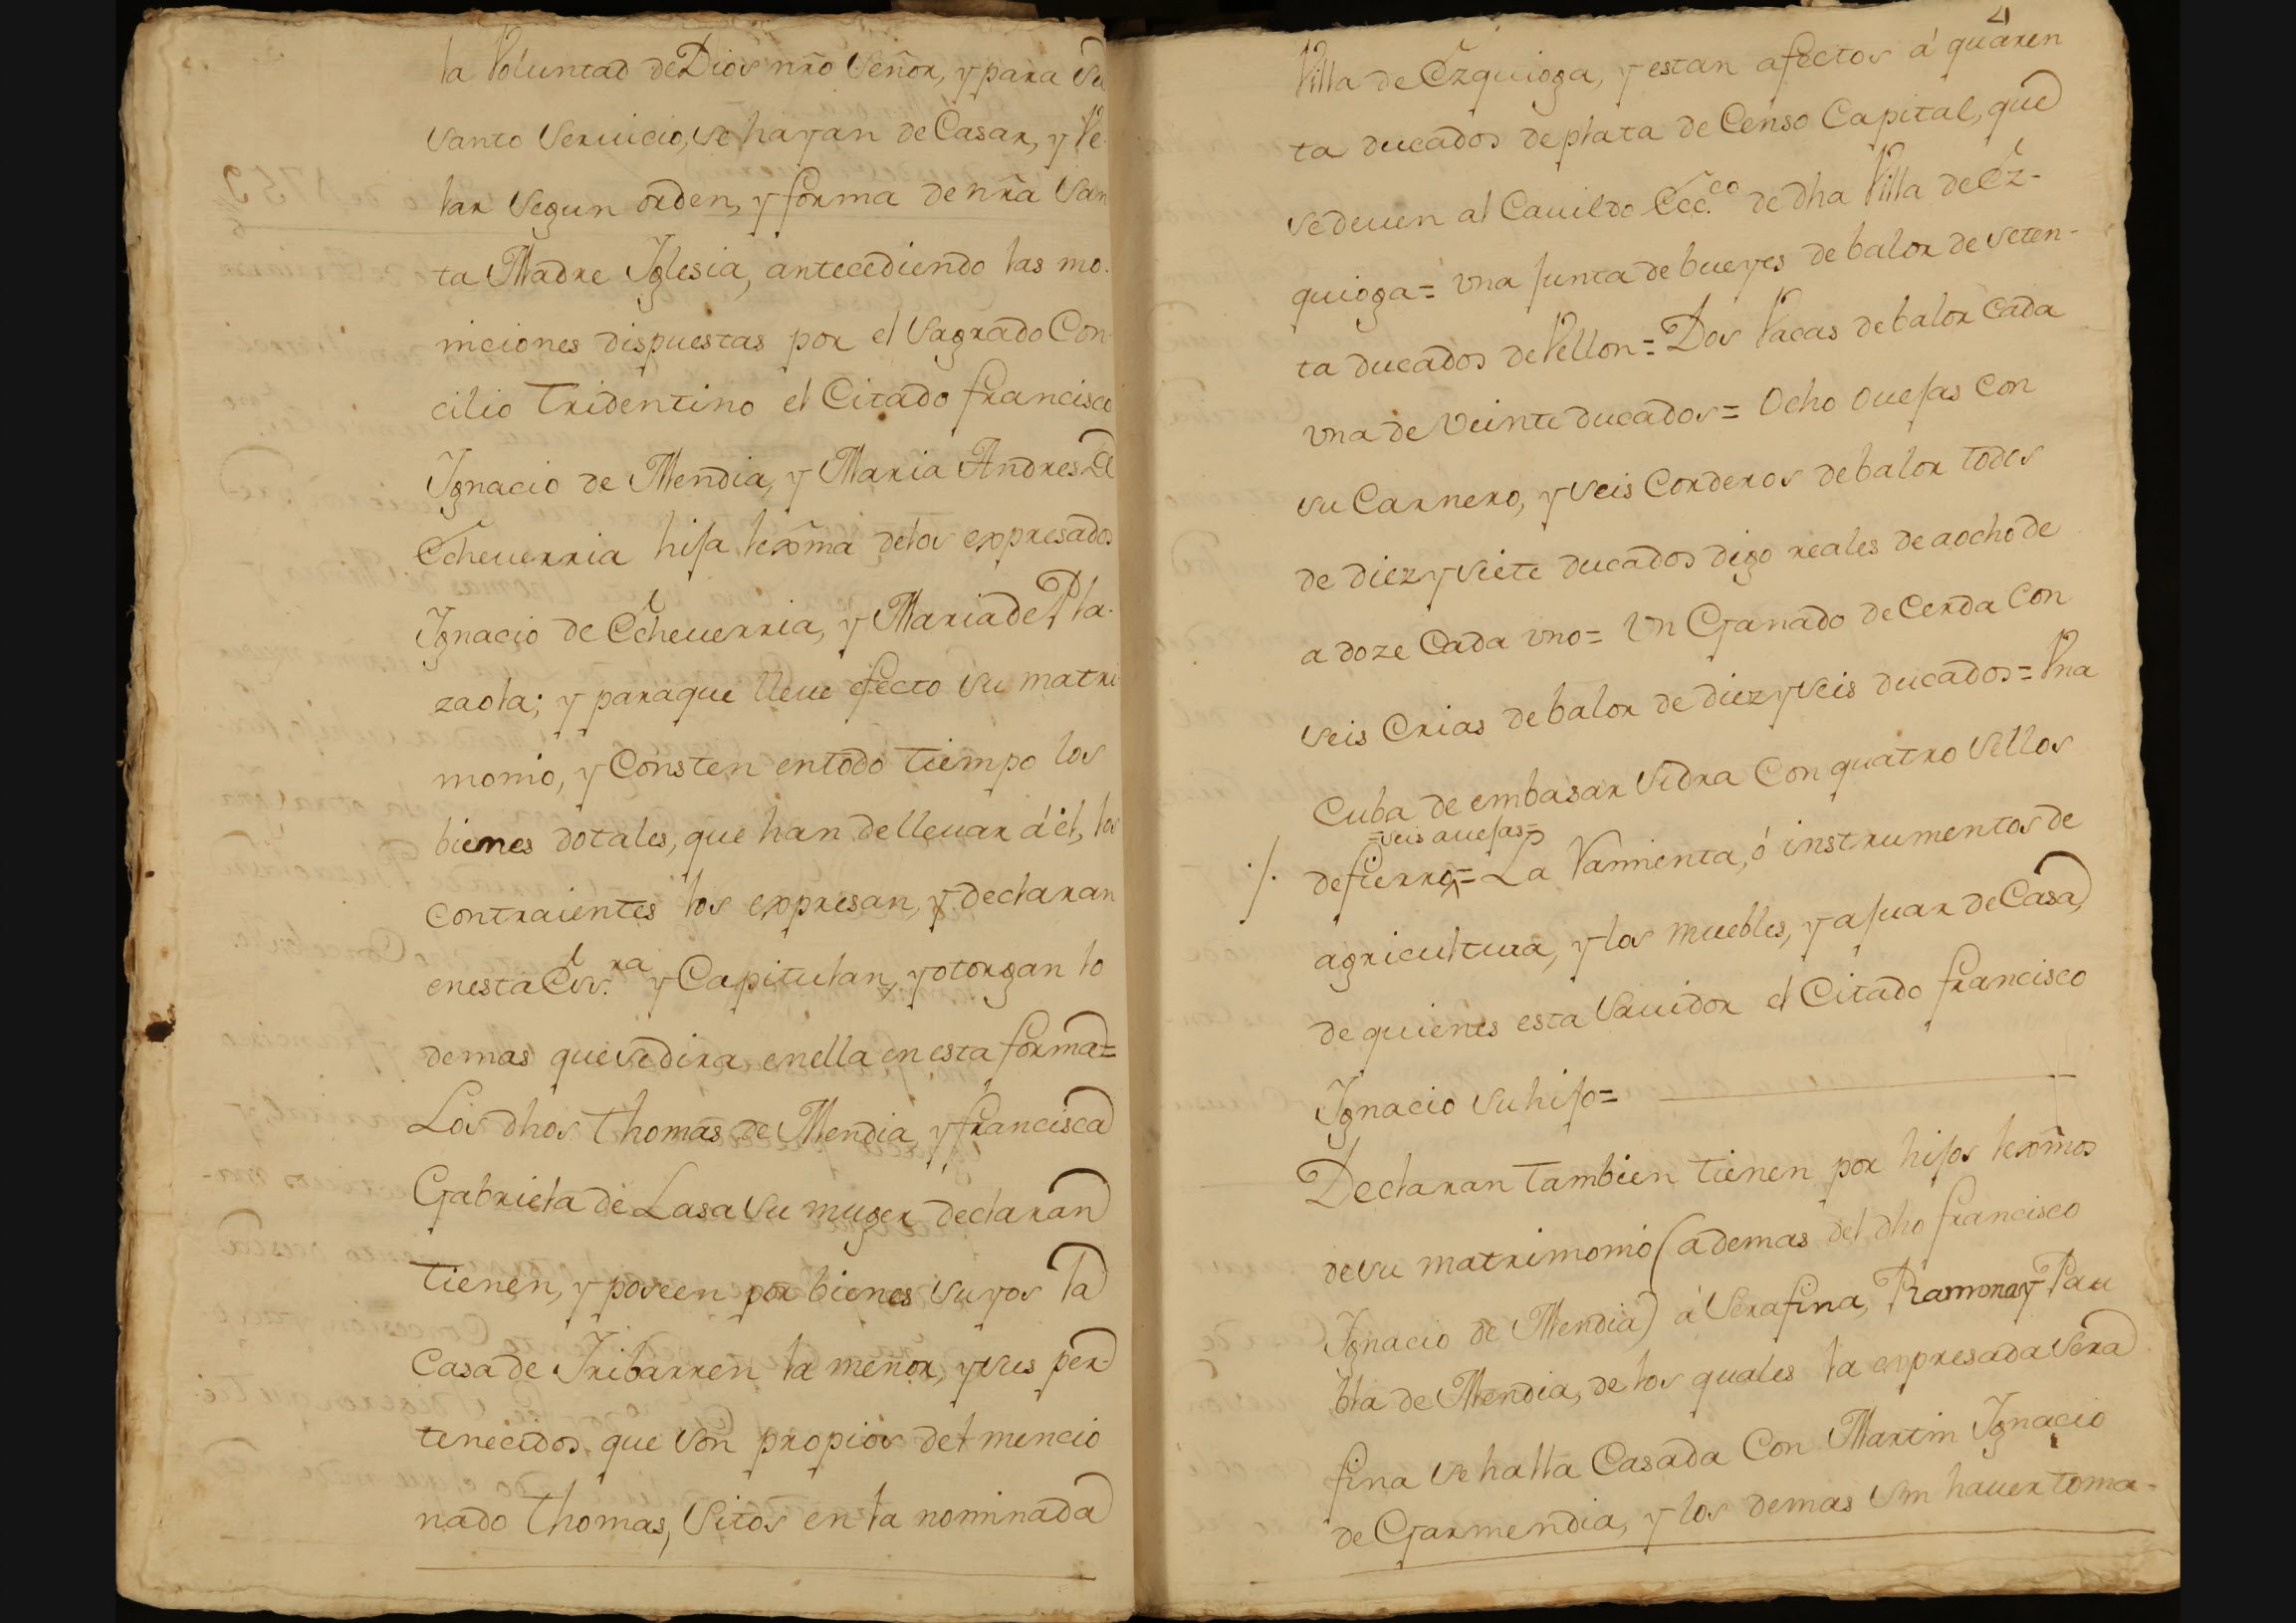 la Voluntad de Dios nr̃o Señor, y para su
santo Servicio, se hayan de Casar, y Ve-
lar segun orden, y forma de nr̃a San
ta Madre Yglesia, antecediendo las mo-
niciones dispuestas por el Sagrado Con-
cilio Tridentino el Citado francisco
Ygnacio de Mendia, y Maria Andres de
Echeuerria hija lexm̃a delos expresados
Ygnacio de Echeuerria, y Maria de Pla-
zaola; y paraque lleue efecto su matri
monio, y Consten entodo tiempo los
bienes dotales, que han de lleuar á él, los
contraientes los expresan, y declaran
enesta Ess.ra y Capitulan, y otorgan lo
demas que se dira enella en esta forma=
Los dhos Thomas de Mendia, y francisca
Gabriela de Lasa su muger declaran
tienen, y poseen por bienes suyos la
Casa de Yribarren la menor, y sus per-
tenecidos, que son propios del mencio
nado Thomas, Sitos en la nominada
4
Villa de Ezquioga, y estan afectos á quaren
ta ducados de plata de Censo Capital, que
se deuen al Cauildo Ecc.co de dha Villa de Ez-
quioga= vna Junta de bueyes de balor de seten-
ta ducados de Vellon= Dos Vacas de balor Cada
vna de Veinte ducados= Ocho ouejas con
su Carnero, y seis Corderos de balor todos
de diez y siete ducados digo reales de aocho de
a doze Cada vno= Vn Ganado de Cerda con
seis Crias de balor de diez y seis ducados= Vna
Cuba de embasar Sidra Con quatro Sellos
=seis auejas=
./. de fierro= La Ramienta, ó instrumentos de
agricultura, y los muebles, y ajuar de Casa,
de quienes esta Sauidor el Citado francisco
Ygnacio su hijo=
Declaran tambien tienen por hijos lexm̃os
de su matrimonio (ademas del dho francisco
Ygnacio de Mendia) á Serafina, Ramona y Pau
bla de Mendia, de los quales la expresada Sera
fina se halla Casada Con Martin Ygnacio
de Garmendia, y los demas sin hauer toma-